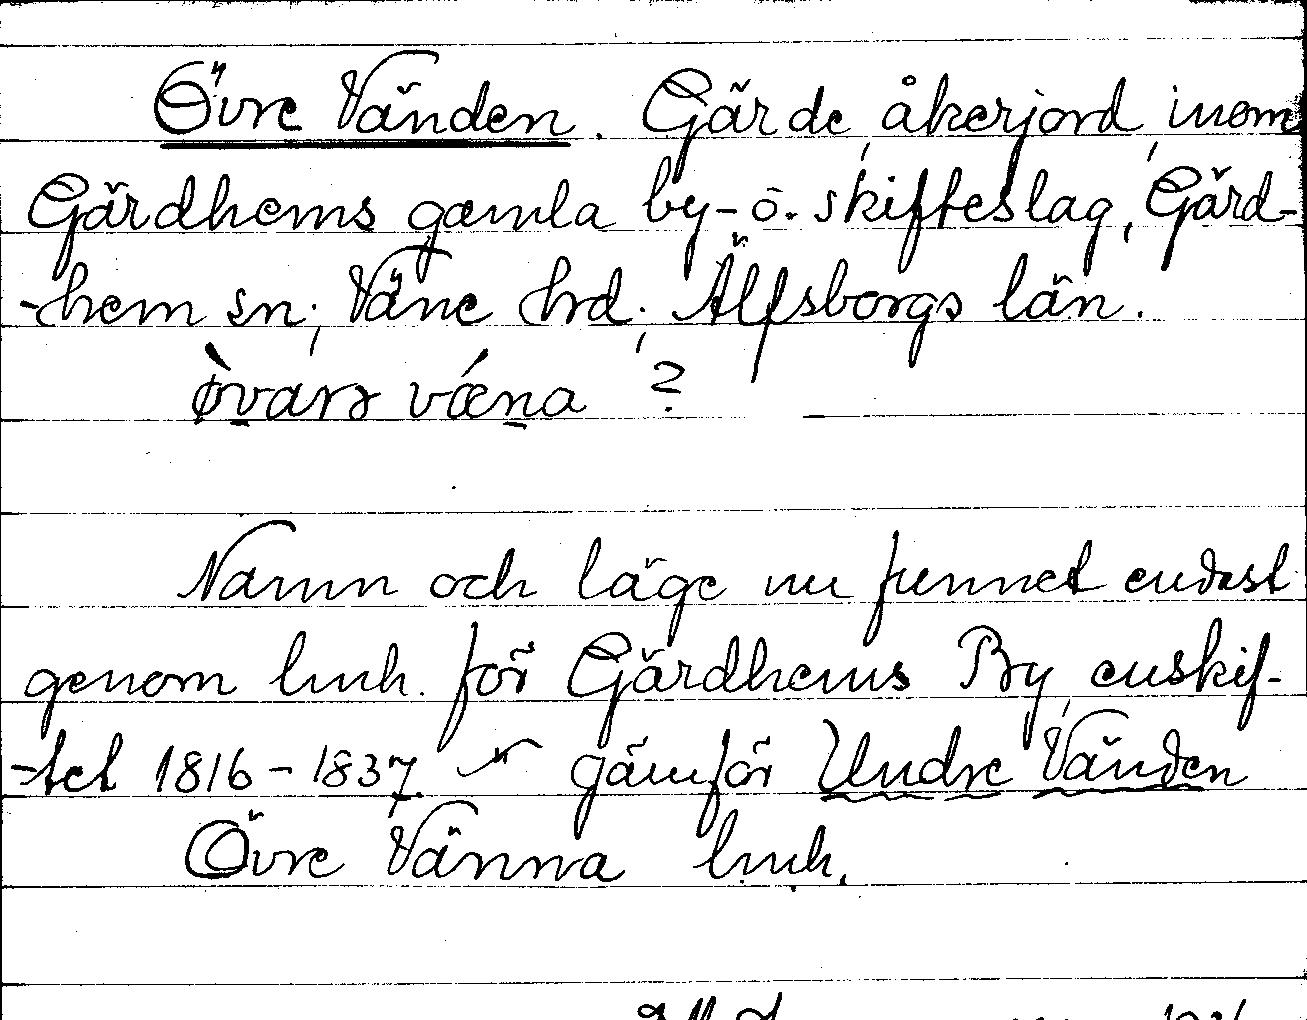 Övre Vänden. Gärde, åkerjord, inom
Gärdhems gamla by- o. skifteslag, Gärd-
-hem sn; Väne hrd; Älfsborgs län.
væna ?
Namn och läge nu funnet endast
genom lmh. för Gärdhems By, enskif-
-tet 1816-1837. jämför Undre Vänden
Övre Vänna lmh.